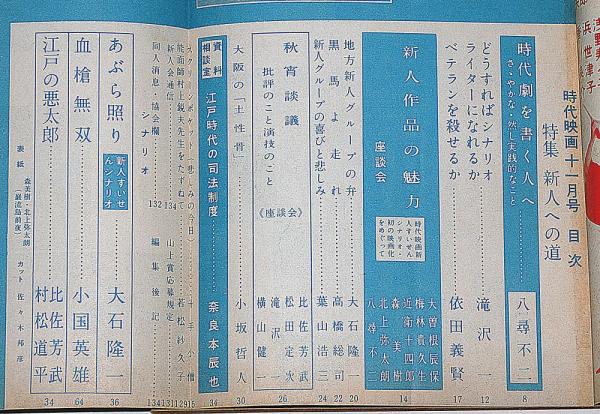 時代映画十一月号 目次
特集 新人への道
時代劇を書く人へ
さゝやかな・然し実践的なこと
八尋不二
8
どうすればシナリオ
ライターになれるか
滝沢一
12
ベテランを殺せるか
依田義賢
17
新人作品の魅力
座談会
時代映画新
人すいせん
シナリオ・
初の映画化
をめぐって
大曽根辰保
梅林貴久生
近衛十四郎
森美樹
北上弥太朗
八尋不二
14
地方新人グループの弁
大石隆一
20
黒馬よ走れ
高橋総司
22
新人グループの喜びと悲しみ
葉山浩三
24
秋宵談議
批評のこと演技のこと
《座談会》
比佐芳武
松田定次
滝沢一
横山健一
26
大阪の「土性骨」
小坂哲人
30
資料
相談室
江戸時代の司法制度
奈良本辰也
34
十手小僧
15
能面師村上鋭夫先生をたずねて
若松紗久子
29
新人会通信
131
山上賞応募規定
11
同人消息・協会欄
132
編集後記
134
シナリオ
あぶら照り
新人すいせ
んシナリオ
大石隆一
36
血槍無双
小国英雄
64
江戸の悪太郎
比佐芳武
村松道平
34
表紙 森美樹・北上弥太朗
(巌流島前夜)
カット 佐々木邦彦